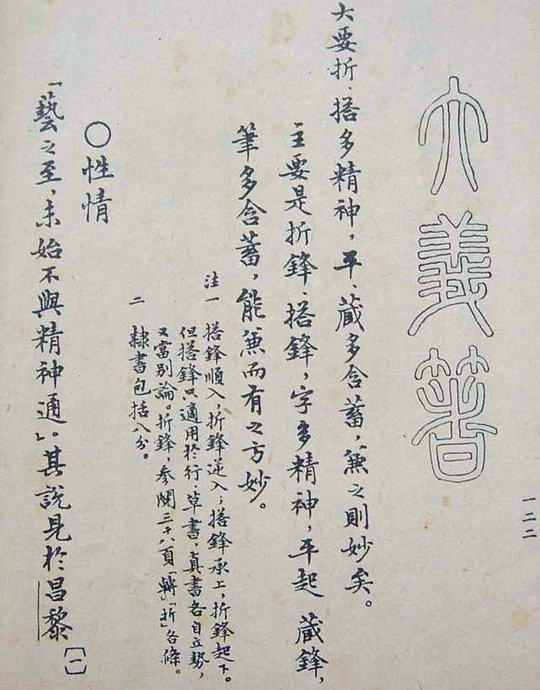 大義箸
一二二
大要折、搭多精神,平、藏多含蓄,兼之則妙矣。
主要是折鋒搭鋒,字多精神,平起藏鋒,
筆多含蓄,能兼而有之方妙。
注一 搭鋒順入,折鋒逆入;搭鋒承上,折鋒起下。
但搭鋒只適用於行、草書,真書各自立勢,
又當別論。折鋒參閱三十八頁「轉」「折」各條。
二 隸書包括八分。
○性情
「藝之至,未始不與精神通」。其說見於昌黎[一]